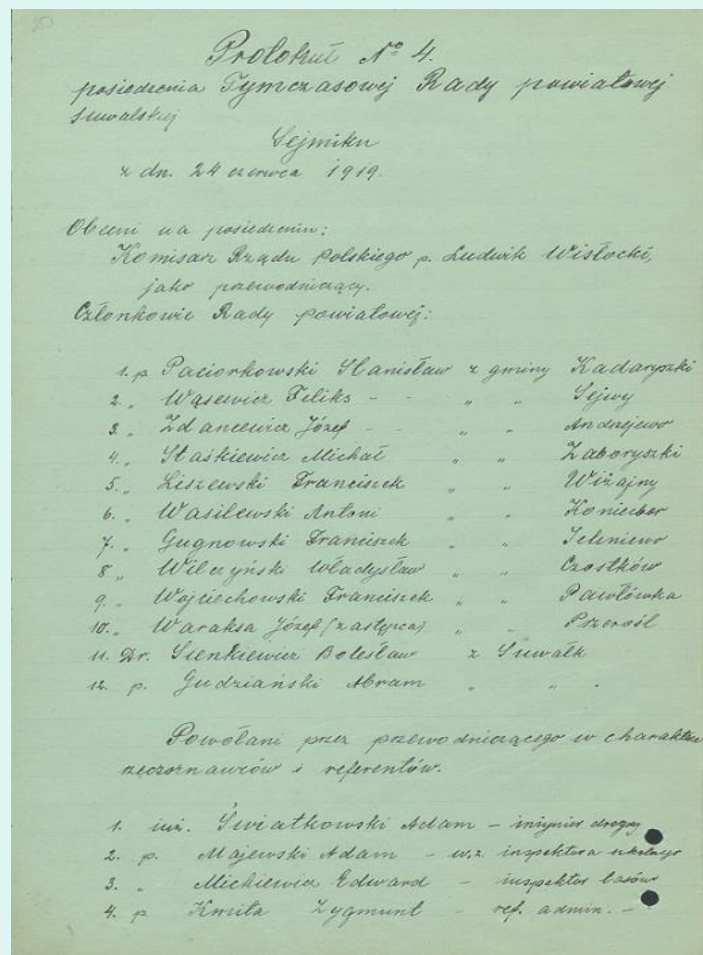 20
Protokuł No 4.
posiedzenia Tymczasowej Rady powiatowej
suwalskiej
Sejmiku
z dn. 24 czerwca 1919.
Obecni na posiedzeniu:
Komisarz Rządu Polskiego p. Ludwik Wisłocki,
jako przewodniczący.
Członkowie Rady powiatowej:
1. p. Paciorkowski Stanisław z gminy Kadaryszki
2. „ Wąsewicz Feliks - - „ „ Sejwy
3. „ Zdancewicz Józef - „ „ Andrzejewo
4. „ Staśkiewicz Michał „ „ Zaboryszki
5. „ Liszewski Franciszek „ „ Wiżajny
6. „ Wasilewski Antoni „ „ Koniecbor
7. „ Gugnowski Franciszek „ „ Jeleniewo
8 „ Wilczyński Władysław „ „ Czostków
9. „ Wojciechowski Franciszek „ „ Pawłówka
10. „ Waraksa Józef (zastępca) „ „ Przerośl
11. Dr. Sienkiewicz Bolesław z Suwałk
12. p. Gudziański Abram „ „ „
Powołani przez przewodniczącego w charakterze
rzeczoznawców i referentów.
1. inż. Światkowski Adam – inżynier drogowy
2. p. Majewski Adam – w.z. inspektora szkolnego
3. „ Mickiewicz Edward – inspektor lasów
4. p Kmita Zygmunt – ref. admin. –